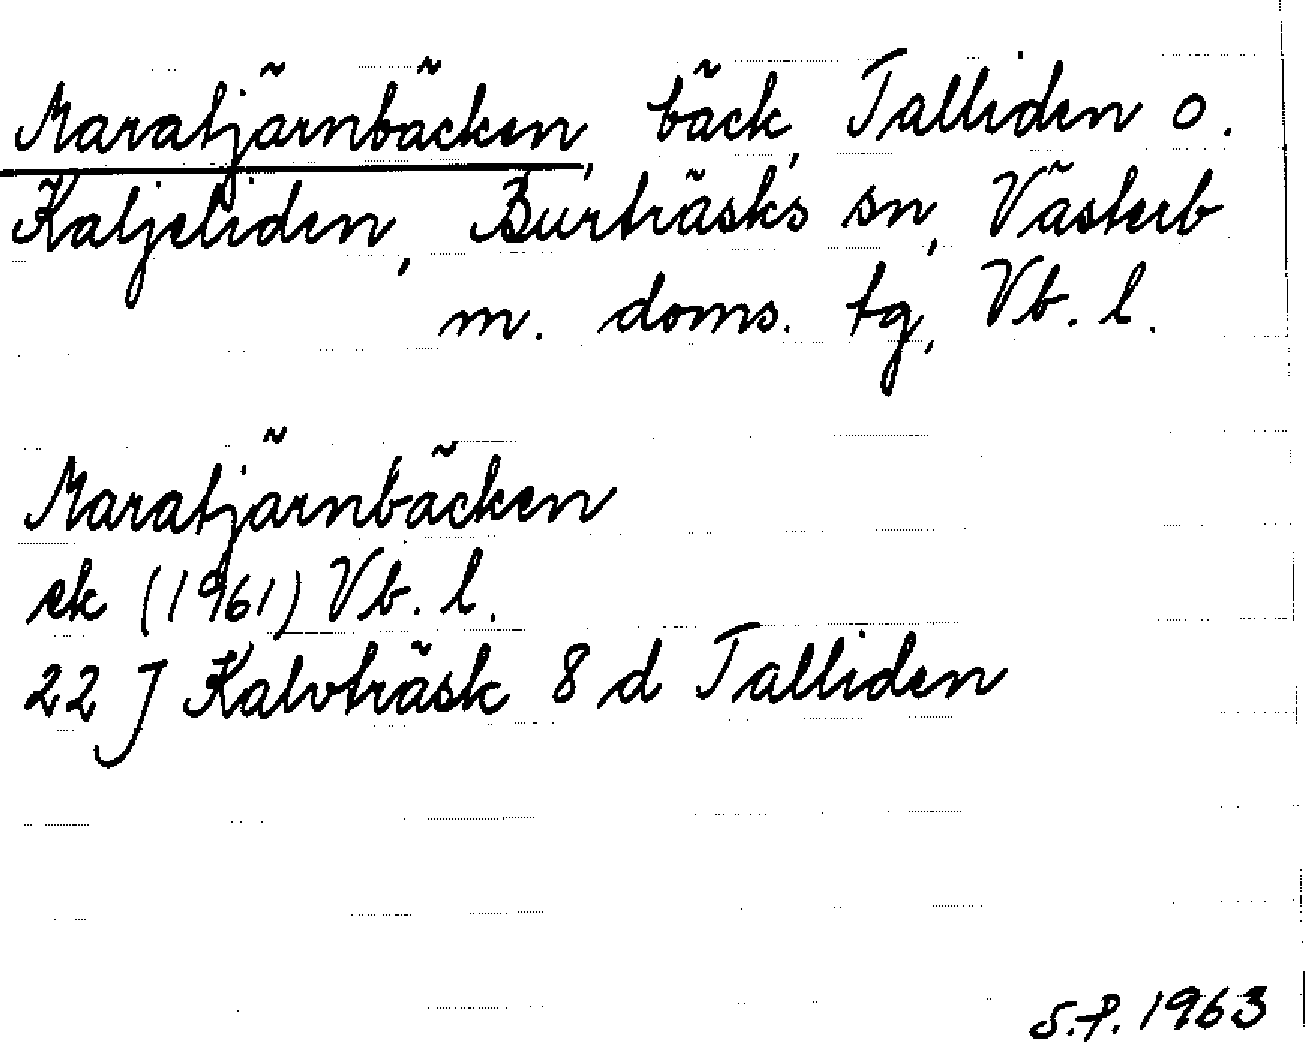 Maratjärnbäcken, bäck, Talliden o.
Kaljeliden, Burträsks sn, Västerb
m. doms. tg, Vb. l.
Maratjärnbäcken
ek (1961) Vb. l.
22 J Kalvträsk 8 d Talliden
S.P. 1963